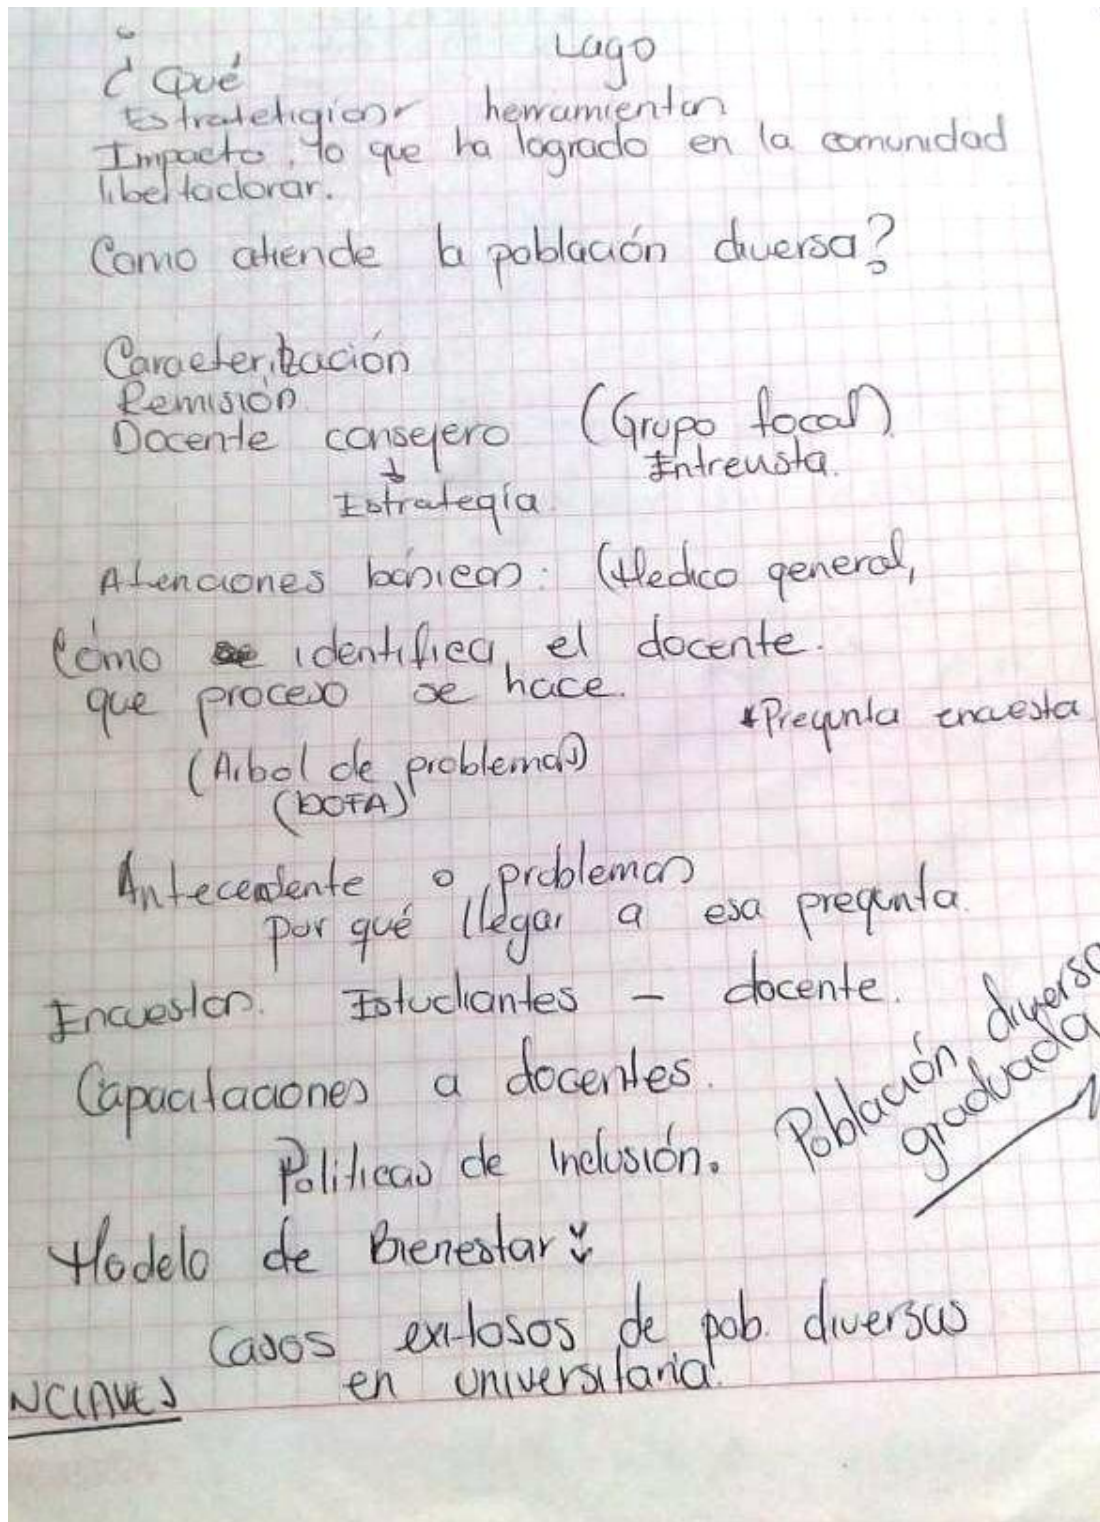 Lago
¿Qué
Estratetigias herramientas
Impacto, lo que ha logrado en la comunidad
libertadorar.
Como atiende la población diversa?
Caracterización
Remisión
Docente consejero (Grupo focal)
Entrevista.
Estrategía
Atenciones básicas: (Medico general,
Cómo se identifica, el docente.
que proceso se hace.
*Pregunta encuesta
(Arbol de problemas)
(DOFA)
Antecedente o problemas
por qué llegar a esa pregunta.
Encuestas. Estudiantes - docente.
Población diversa
graduada
Capacitaciones a docentes.
Politicas de Inclusión.
Modelo de Bienestar:
Casos exitosos de pob. diversas
en universitaria.